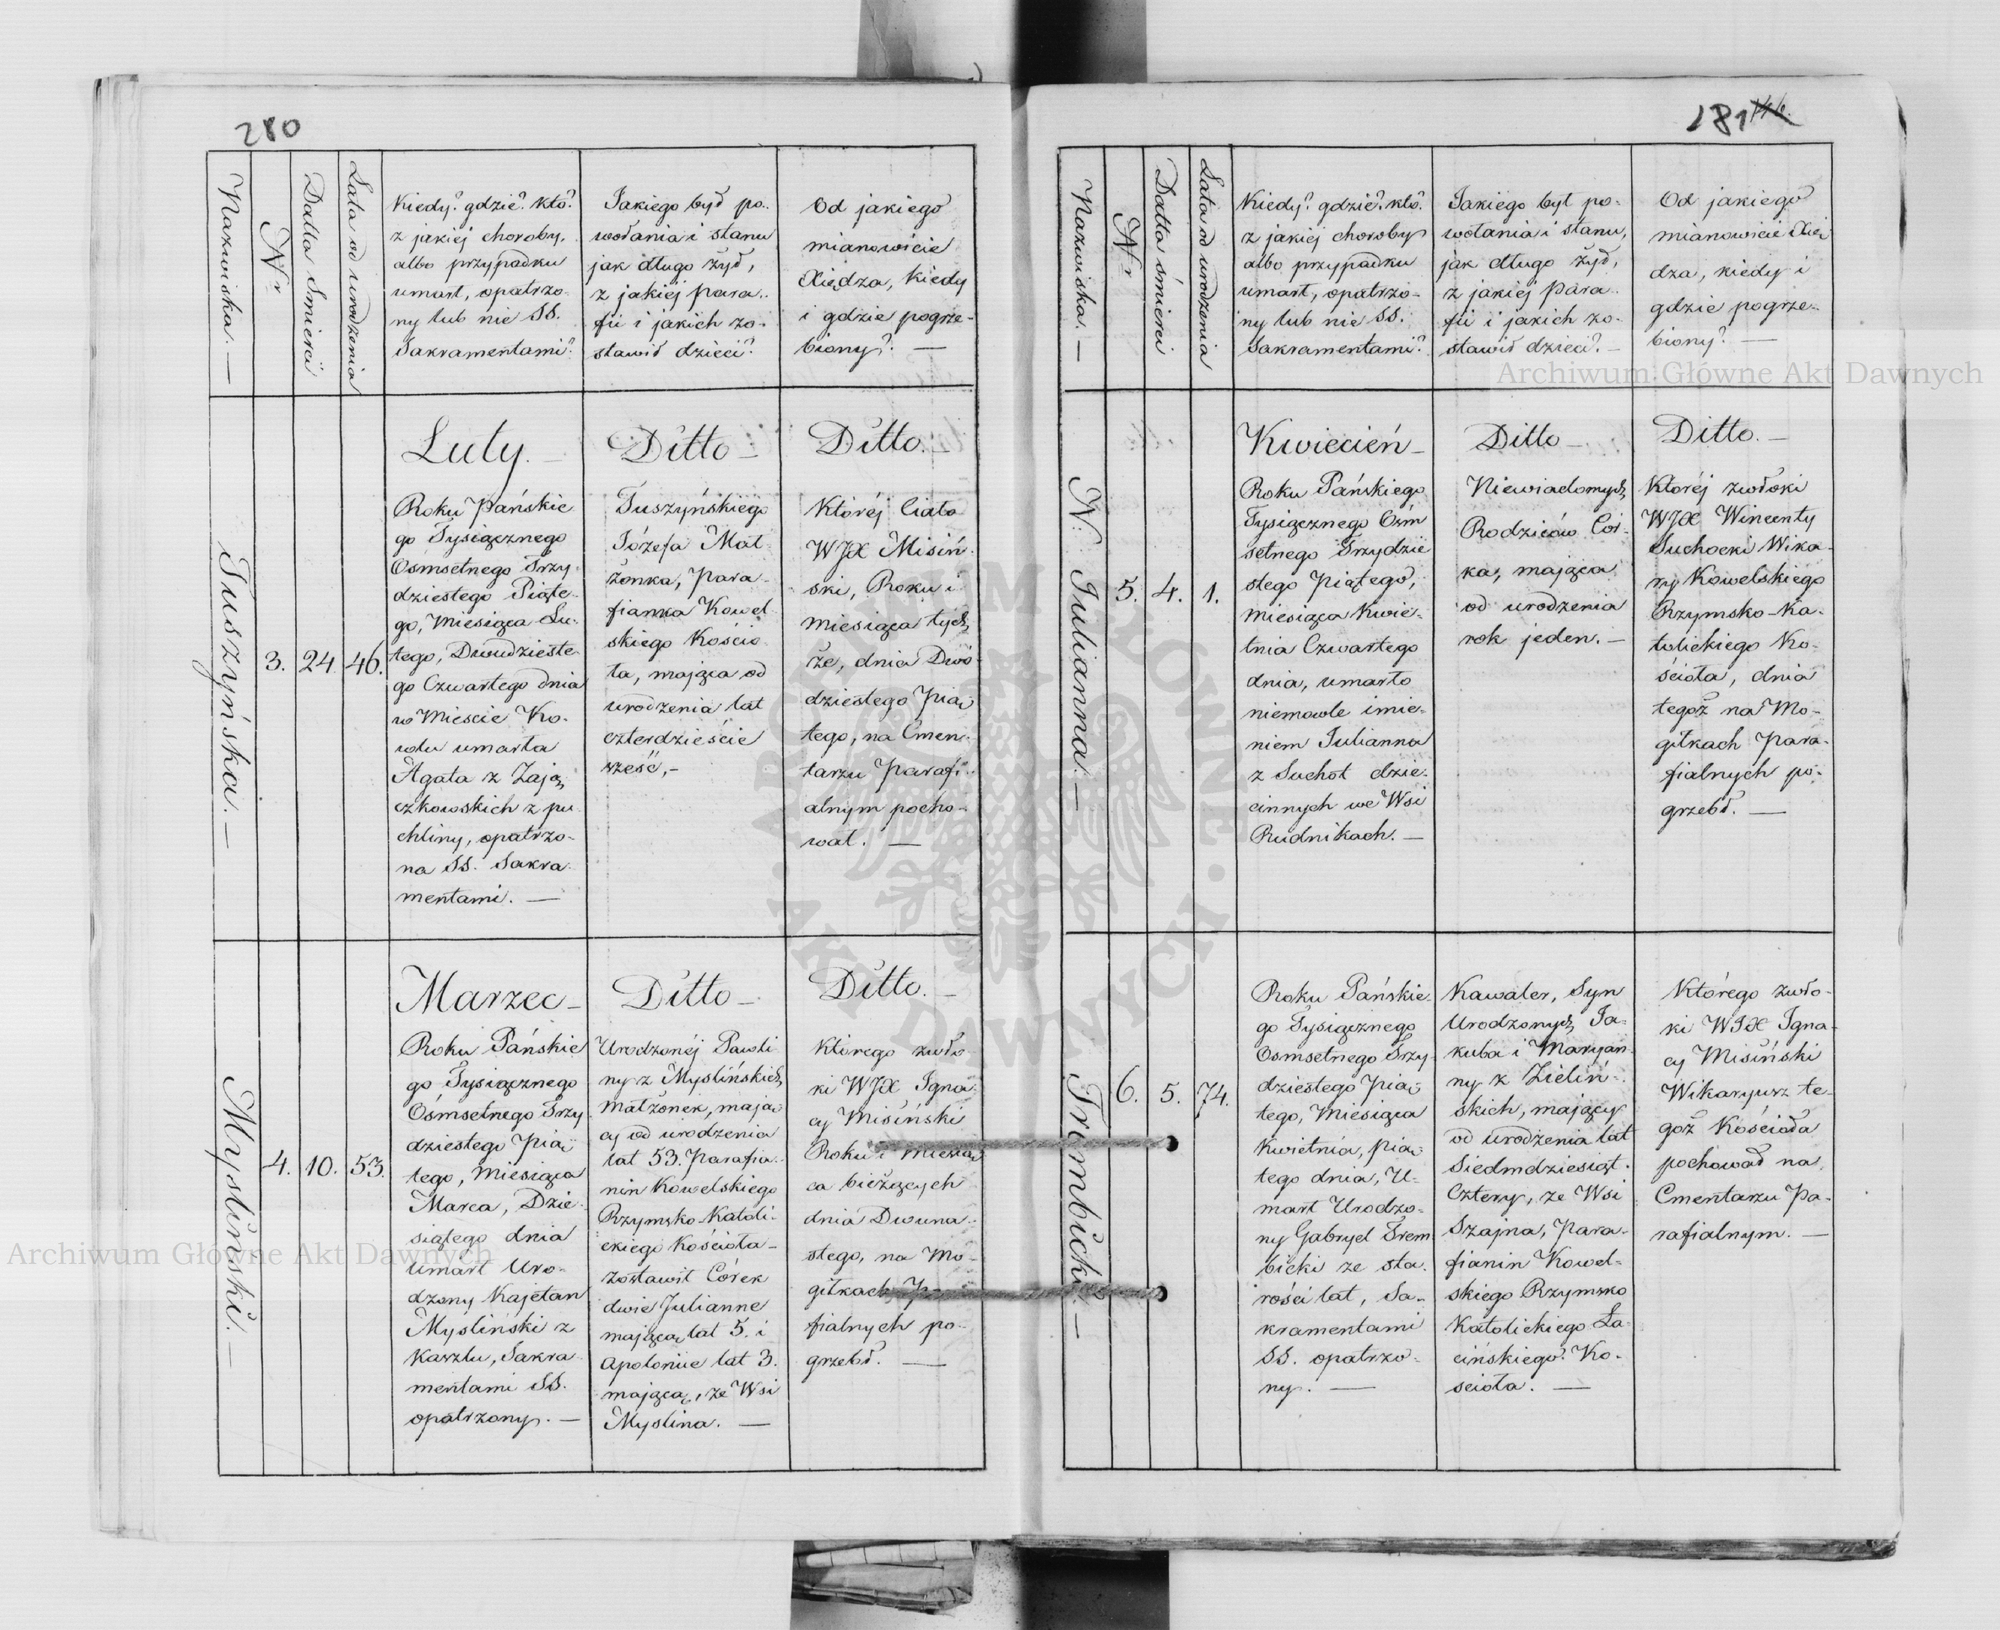 280
Nazwiska. —
Nr
Datta Smierci
Lata od urodzenia
Kiedy? gdzie? kto?
z jakiej choroby,
albo przypadku
umarł, opatrzo-
ny lub nie SS.
Sakramentami?
Jakiego był po-
wołania i stanu
jak długo żył,
z jakiej para-
fii i jakich zo-
stawił dzieci?
Od jakiego
mianowicie
Xiędza, Kiedy
i gdzie pogrze-
biony? —
Tuszyńska. —
3.
24
46.
Luty. —
Roku Pańskie
go Tysiącznego
Osmsetnego Trzy
dziestego Piąte-
go, Miesiąca Lu-
tego, Dwudzieste-
go Czwartego dnia
w Mieście Ko-
wlu umarła
Agata z Zają
czkowskich z pu
chliny, opatrzo-
na SS. Sakra-
mentami. —
Ditto —
Tuszyńskiego
Józefa Mał-
żonka, Para-
fianka Kowel-
skiego Kościo
ła, mająca od
urodzenia lat
czterdzieście
sześć, —
Ditto. —
Któréj Ciało
WJX Misiń-
ski, Roku i
miesiąca tych
że, dnia Dwó-
dziestego Pią-
tego, na Cmen-
tarzu Parafi-
alnym pocho-
wał. —
Mysliński. —
4.
10.
53.
Marzec —
Roku Pańskie
go Tysiącznego
Ośmsetnego Trzy
dziestego Pią-
tego, Miesiąca
Marca, Dzie-
siątego dnia
umarł Uro-
dzony Kajetan
Mysliński z
Kaszlu, Sakra-
mentami SS.
opatrzony. —
Ditto —
Urodzonéj Pauli
ny z Myslińskich
Małżonek, mają
cy od urodzenia
lat 53. Parafia-
nin Kowelskiego
Rzymsko-Katoli-
ckiego Kościoła —
zostawił Córek
dwie Juliannę
mającą lat 5. i
Apolonię lat 3.
mającą, ze Wsi
Myslina. —
Ditto. —
Którego zwło
ki WJX Igna
cy Misiński
Roku i miesią
ca bieżących
dnia Dwuna-
stego, na Mo-
giłkach Pa
fialnych po-
grzebł. —
181
Nazwiska. —
Nr
Datta śmierci
Lata od urodzenia
Kiedy? gdzie? kto?
z jakiej choroby
albo przypadku
umarł, opatrzo-
ny lub nie SS.
Sakramentami?
Jakiego był po-
wołania i stanu,
jak długo żył,
z jakiej para-
fii i jakich zo-
stawił dzieci? —
Od jakiego
mianowicie Xię-
dza, kiedy i
gdzie pogrze-
biony? —
Archiwum Główne Akt Dawnych
N: Julianna. —
5.
4.
1.
Kwiecień —
Roku Pańskiego
Tysiącznego Ośm
setnego Trzydzie
stego Piątego,
Miesiąca Kwie-
tnia Czwartego
dnia, umarło
niemowle imie-
niem Julianna
z Suchot dzie-
cinnych we Wsi
Rudnikach. —
Ditto —
Niewiadomych
Rodziców Cór-
ka, mająca
od urodzenia
rok jeden. —
Ditto. —
Któréj zwłoki
WJX Wincenty
Suchocki Wika-
ry Kowelskiego
Rzymsko-Ka-
tolickiego Ko-
ścioła, dnia
tegoż na Mo-
giłkach Para-
fialnych po-
grzebł. —
Trembicki. —
6.
5.
74.
Roku Pańskie
go Tysiącznego
Osmsetnego Trzy
dziestego Pią-
tego, Miesiąca
Kwietnia, pią-
tego dnia, U-
marł Urodzo-
ny Gabryel Trem
bicki ze sta-
rości lat, Sa-
kramentami
SS. opatrzo-
ny. —
Kawaler, Syn
Urodzonych Ja-
kuba i Maryan-
ny z Zieliń-
skich, mający
od urodzenia lat
Siedmdziesiąt
Cztery, ze Wsi
Szajna, Para-
fianin Kowel-
skiego Rzymsko
Katolickiego Ła-
cińskiego Ko-
scioła. —
Którego zwło-
ki WJX Igna-
cy Misiński
Wikaryusz te-
goż Kościoła
pochował na
Cmentarzu Pa-
rafialnym. —
Archiwum Główne Akt Dawnych
ARCHIWUM GŁÓWNE · AKT DAWNYCH ·